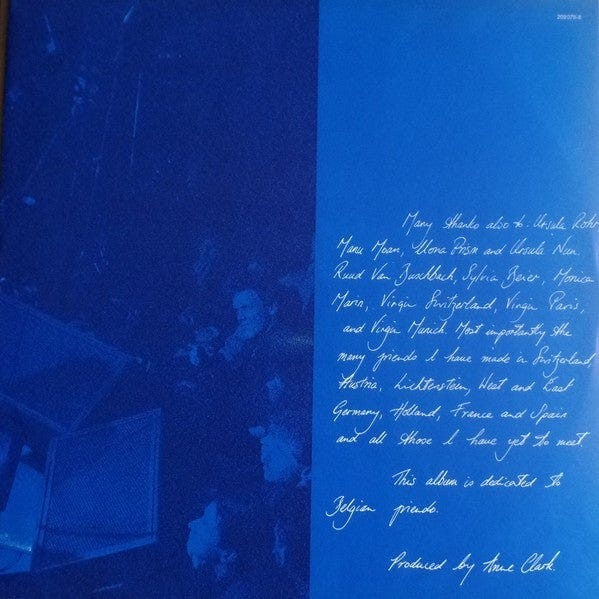 209079-8
Many thanks also to - Ursula Rohr
Manu Moan, Mona Prism and Ursula Nun.
Ruud Van Buschbach, Sylvia Beier, Monica
Marin, Virgin Switzerland, Virgin Paris,
and Virgin Munich. Most importantly the
many friends I have made in Switzerland
Austria, Lichtenstein, West and East
Germany, Holland, France and Spain
and all those I have yet to meet.
This album is dedicated to
Belgian friends.
Produced by Anne Clark.